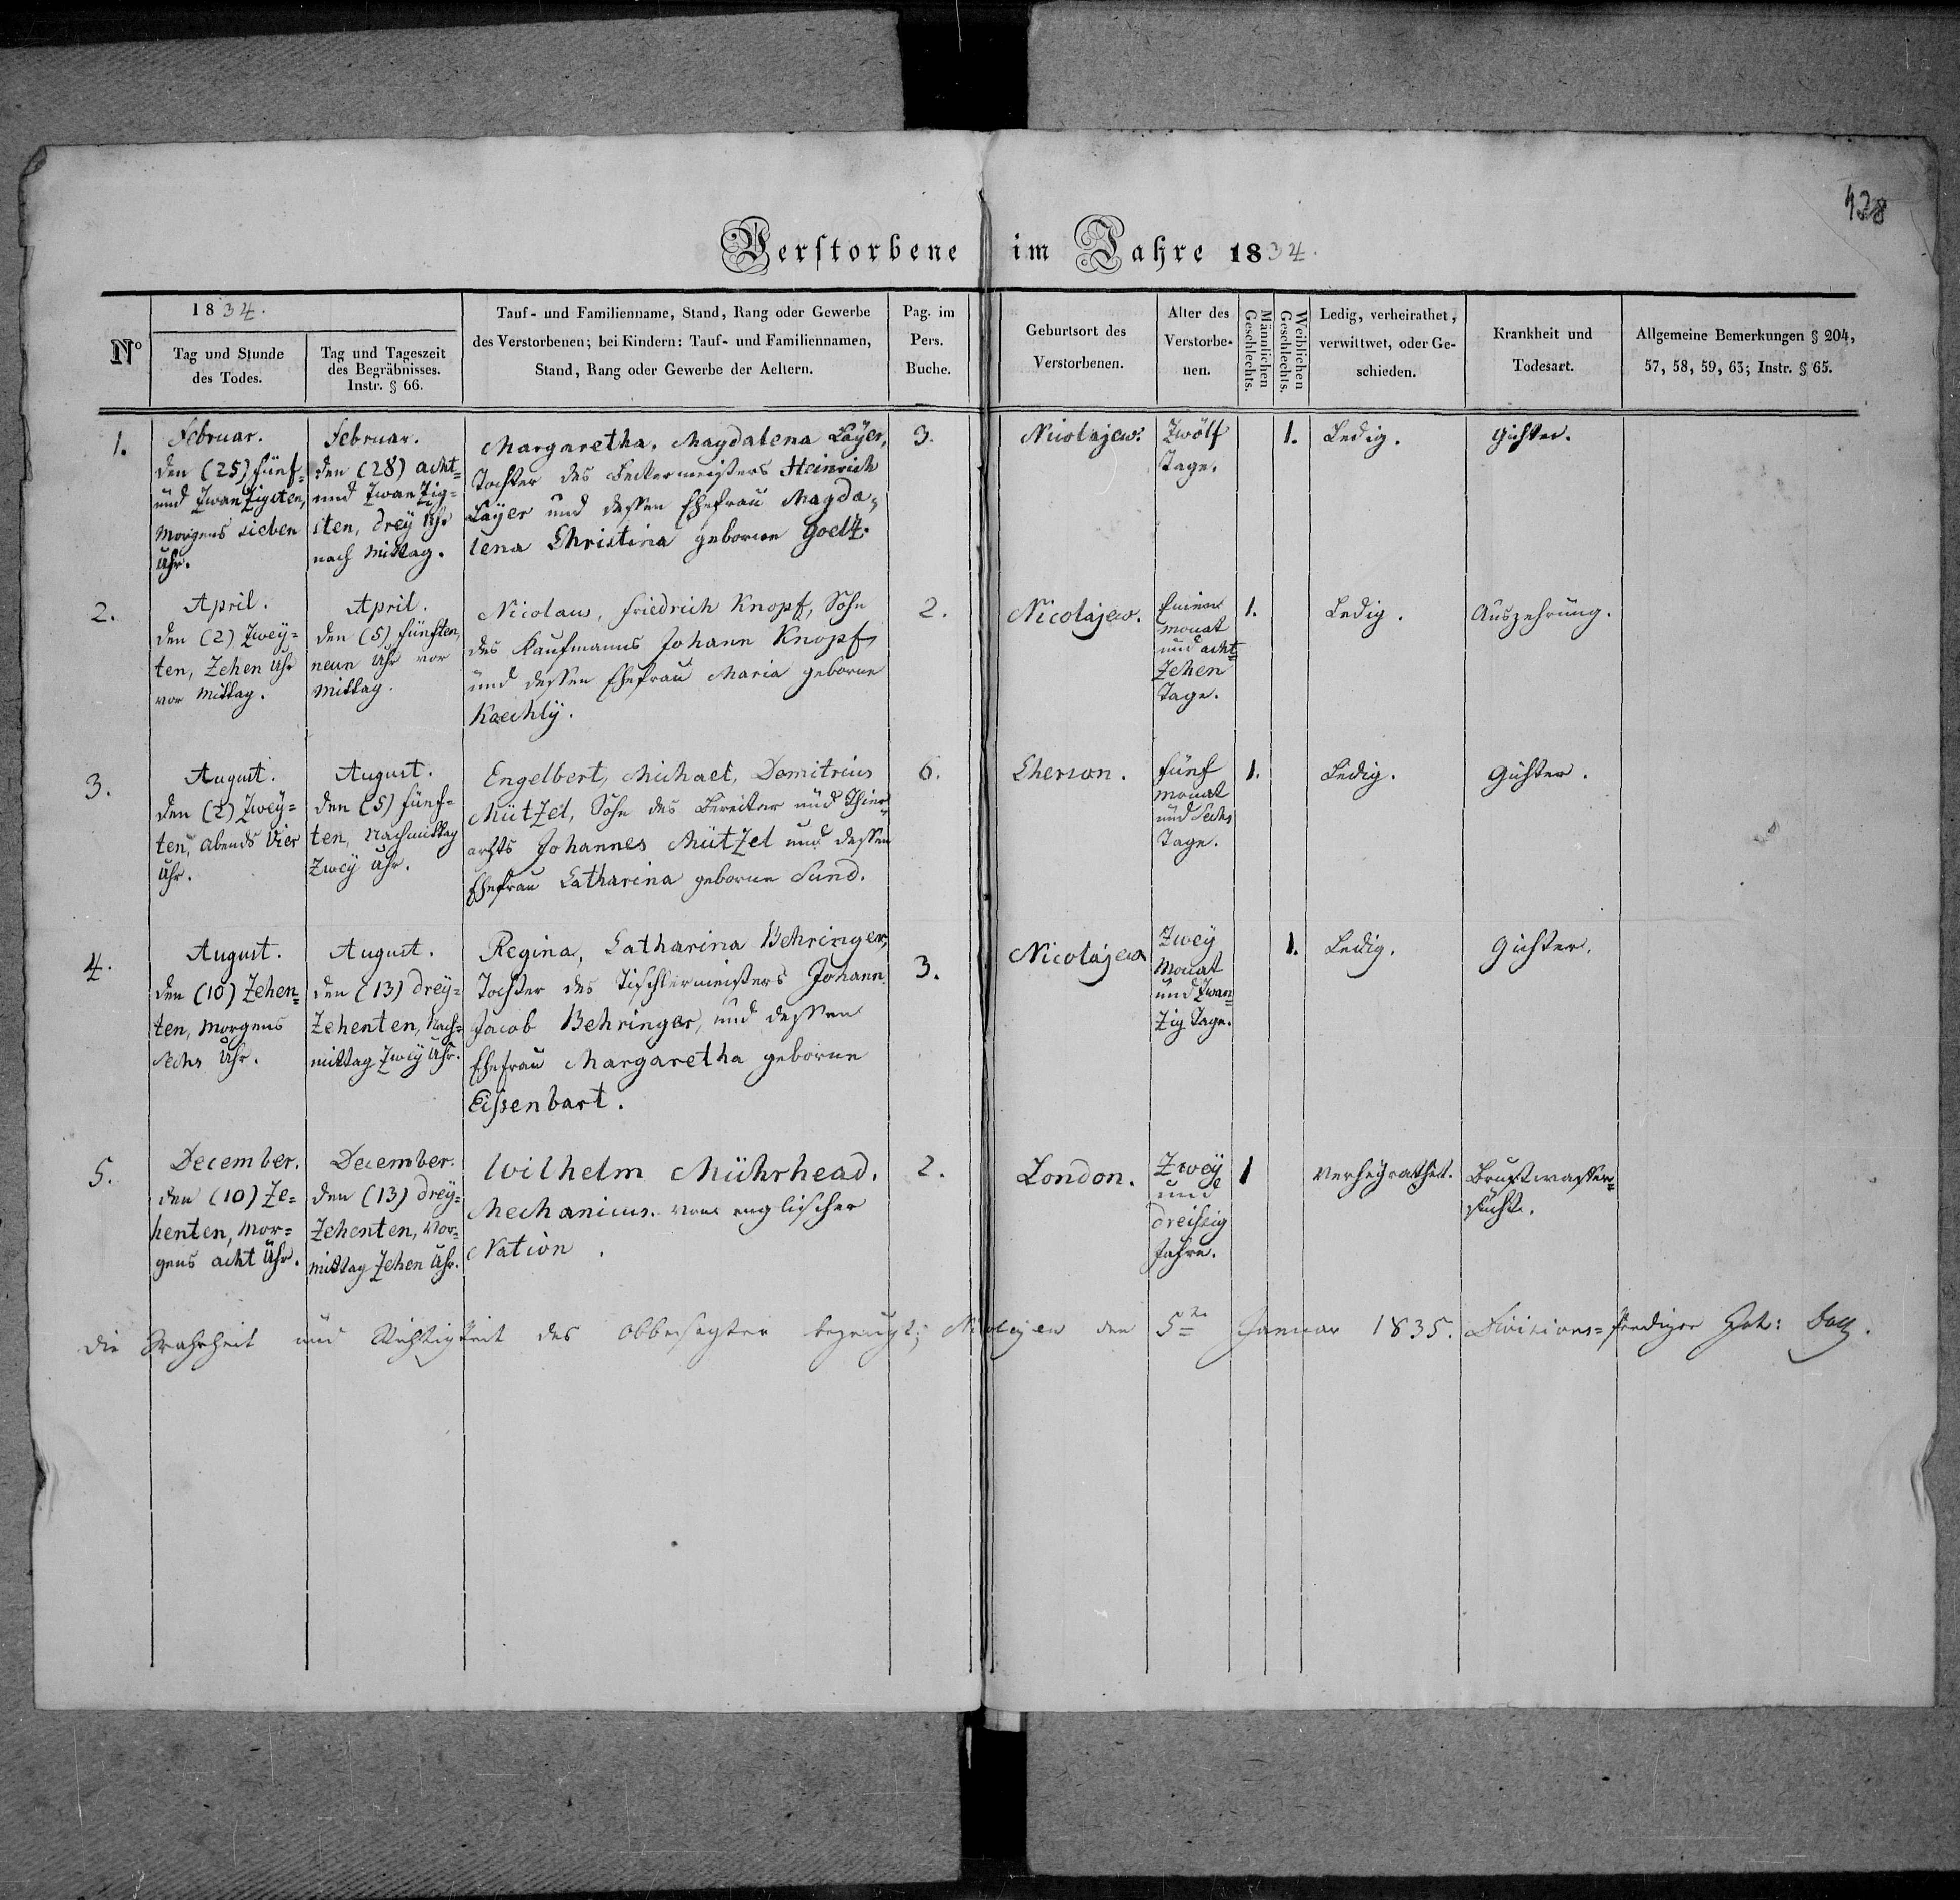 428
Verstorbene im Jahre 1834.
Nº
1834.
Tag und Stunde
des Todes.
Tag und Tageszeit
des Begräbnisses.
Instr. § 66.
Tauf- und Familienname, Stand, Rang oder Gewerbe
des Verstorbenen; bei Kindern: Tauf- und Familiennamen,
Stand, Rang oder Gewerbe der Aeltern.
Pag. im
Pers.
Buche.
Geburtsort des
Verstorbenen.
Alter des
Verstorbe-
nen.
Männlichen
Geschlechts.
Weiblichen
Geschlechts.
Ledig, verheirathet,
verwittwet, oder Ge-
schieden.
Krankheit und
Todesart.
Allgemeine Bemerkungen § 204,
57, 58, 59, 63; Instr. § 65.
1.
Februar.
den (25) fünf-
und Zwanzigsten,
Morgens sieben
Uhr.
Februar.
den (28) acht-
und Zwanzig-
sten, drey Uhr
nach Mittag.
Margaretha, Magdalena Layer,
Tochter des Beckermeisters Heinrich
Layer und dessen Ehefrau Magda-
lena Christina geborne Goeltz.
3.
Nicolajew.
Zwölf
Tage.
1.
Ledig.
Gichter.
2.
April.
den (2) Zwey-
ten, Zehen Uhr
vor Mittag.
April.
den (5) fünften,
neun Uhr vor
Mittag.
Nicolaus, Friedrich Knopf, Sohn
des Kaufmanns Johann Knopf,
und dessen Ehefrau Maria geborne
Kaechly.
2.
Nicolajew.
Einen
Monat
und acht-
Zehen
Tage.
1.
Ledig.
Auszehrung.
3.
August.
den (2) Zwey-
ten, Abends Vier
Uhr.
August.
den (5) fünf-
ten, Nachmittag
Zwey Uhr.
Engelbert, Michael, Demitrius
Mützel, Sohn des Bereiter und Thier-
arzts Johannes Mützel und dessen
Ehefrau Catharina geborne Sund.
6.
Cherson.
Fünf
Monat
und Sechs
Tage.
1.
Ledig.
Gichter.
4.
August.
den (10) Zehen-
ten, Morgens
Sechs Uhr.
August.
den (13) drey-
Zehenten, Nach-
mittag Zwey Uhr.
Regina, Catharina Behringer,
Tochter des Tischlermeisters Johann
Jacob Behringer, und dessen
Ehefrau Margaretha geborne
Eissenbart.
3.
Nicolajew
Zwey
Monat
und Zwan-
zig Tage.
1.
Ledig.
Gichter.
5.
December.
den (10) Ze-
henten, Mor-
gens acht Uhr.
December.
den (13) drey-
Zehenten, Vor-
mittag Zehen Uhr.
Wilhelm Mührhead.
Mechanicus. von englischer
Nation.
2.
London.
Zwey
und
dreissig
Jahre.
1
Verheyrathet.
Brustwasser-
sucht.
Die Wahrheit und Richtigkeit des Obbesagten bezeugt; Nicolajew den 5ten Januar 1835. Divisions-Prediger Joh: